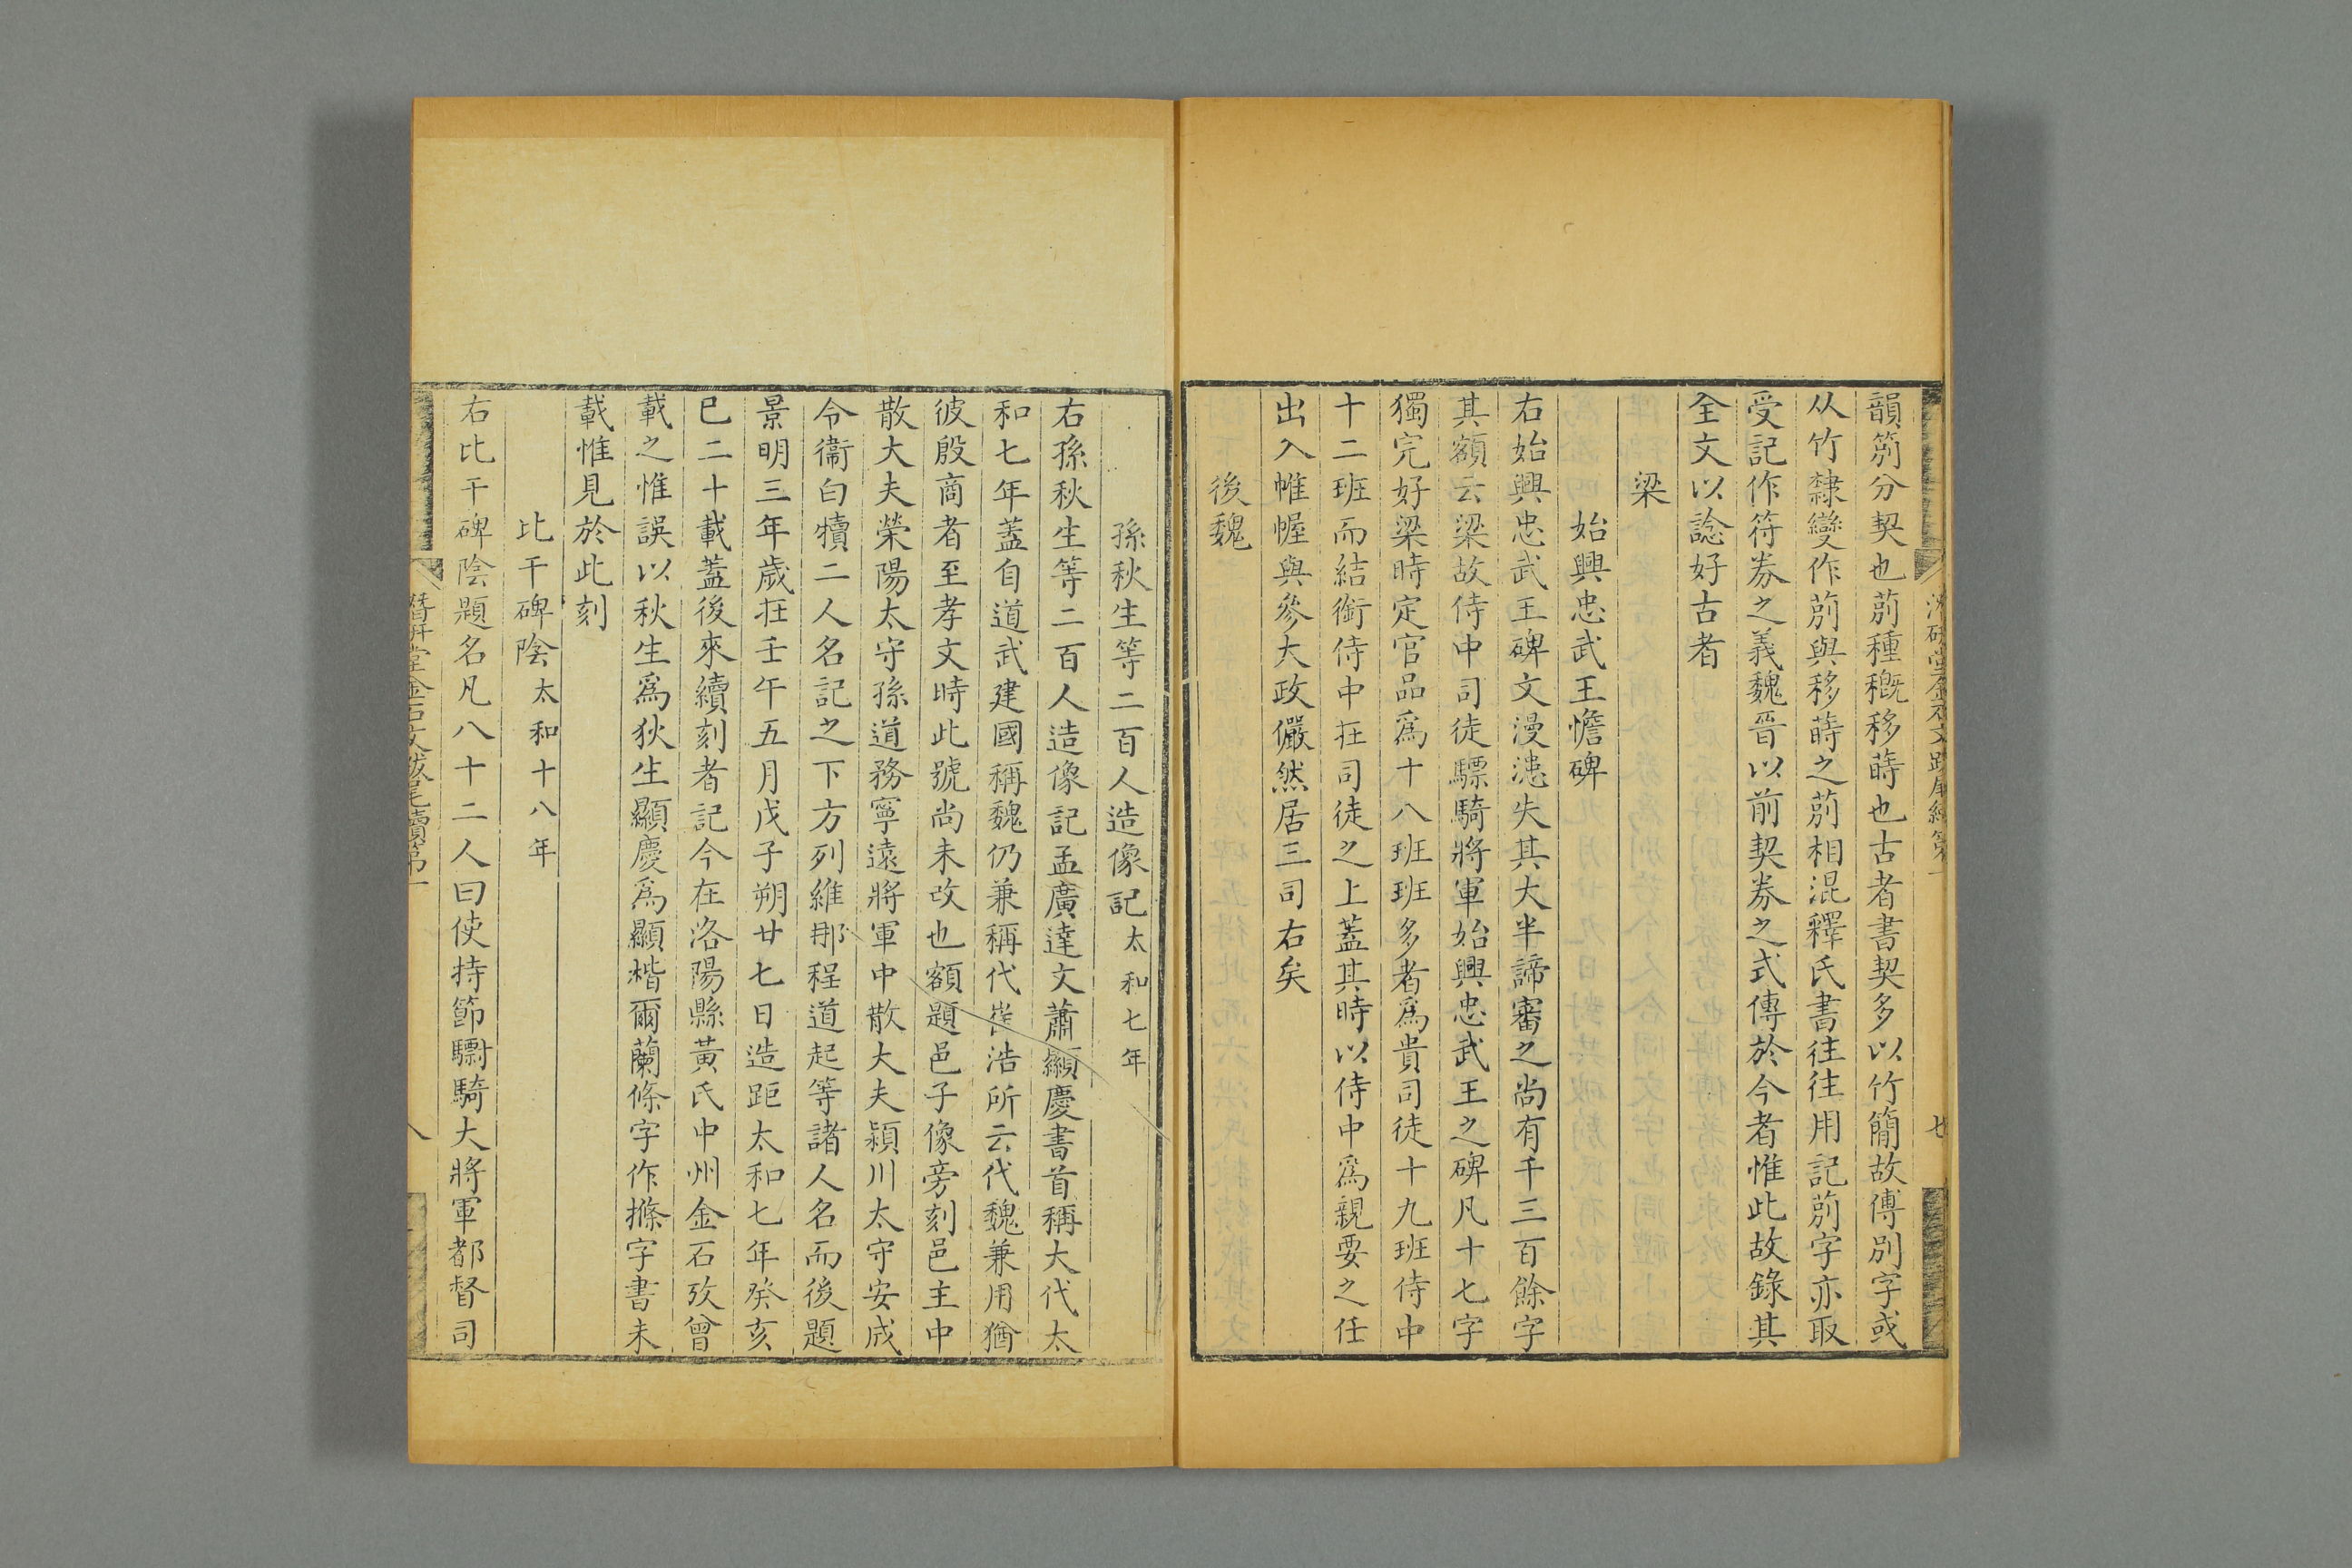 韻莂分契也莂種穊移蒔也古者書契多以竹簡故傅別字或
从竹隸變作莂與移蒔之莂相混釋氏書往往用記莂字亦取
受記作符券之義魏晉以前契券之式傳於今者惟此故錄其
全文以諗好古者
梁
始興忠武王憺碑
右始興忠武王碑文漫漶失其大半諦審之尚有千三百餘字
其額云梁故侍中司徒驃騎將軍始興忠武王之碑凡十七字
獨完好梁時定官品爲十八班班多者爲貴司徒十九班侍中
十二班而結銜侍中在司徒之上蓋其時以侍中爲親要之任
出入帷幄與參大政儼然居三司右矣
後魏
孫秋生等二百人造像記太和七年
右孫秋生等二百人造像記孟廣達文蕭顯慶書首稱大代太
和七年蓋自道武建國稱魏仍兼稱代崔浩所云代魏兼用猶
彼殷商者至孝文時此號尚未改也額題邑子像旁刻邑主中
散大夫榮陽太守孫道務寧遠將軍中散大夫潁川太守安成
令衞白犢二人名記之下方列維那程道起等諸人名而後題
景明三年歲在壬午五月戊子朔廿七日造距太和七年癸亥
已二十載蓋後來續刻者記今在洛陽縣黃氏中州金石攷曾
載之惟誤以秋生爲狄生顯慶爲顯楷爾蘭條字作搽字書未
載惟見於此刻
比干碑陰太和十八年
右比干碑陰題名凡八十二人曰使持節驃騎大將軍都督司
潛研堂金石文跋尾續第一
八